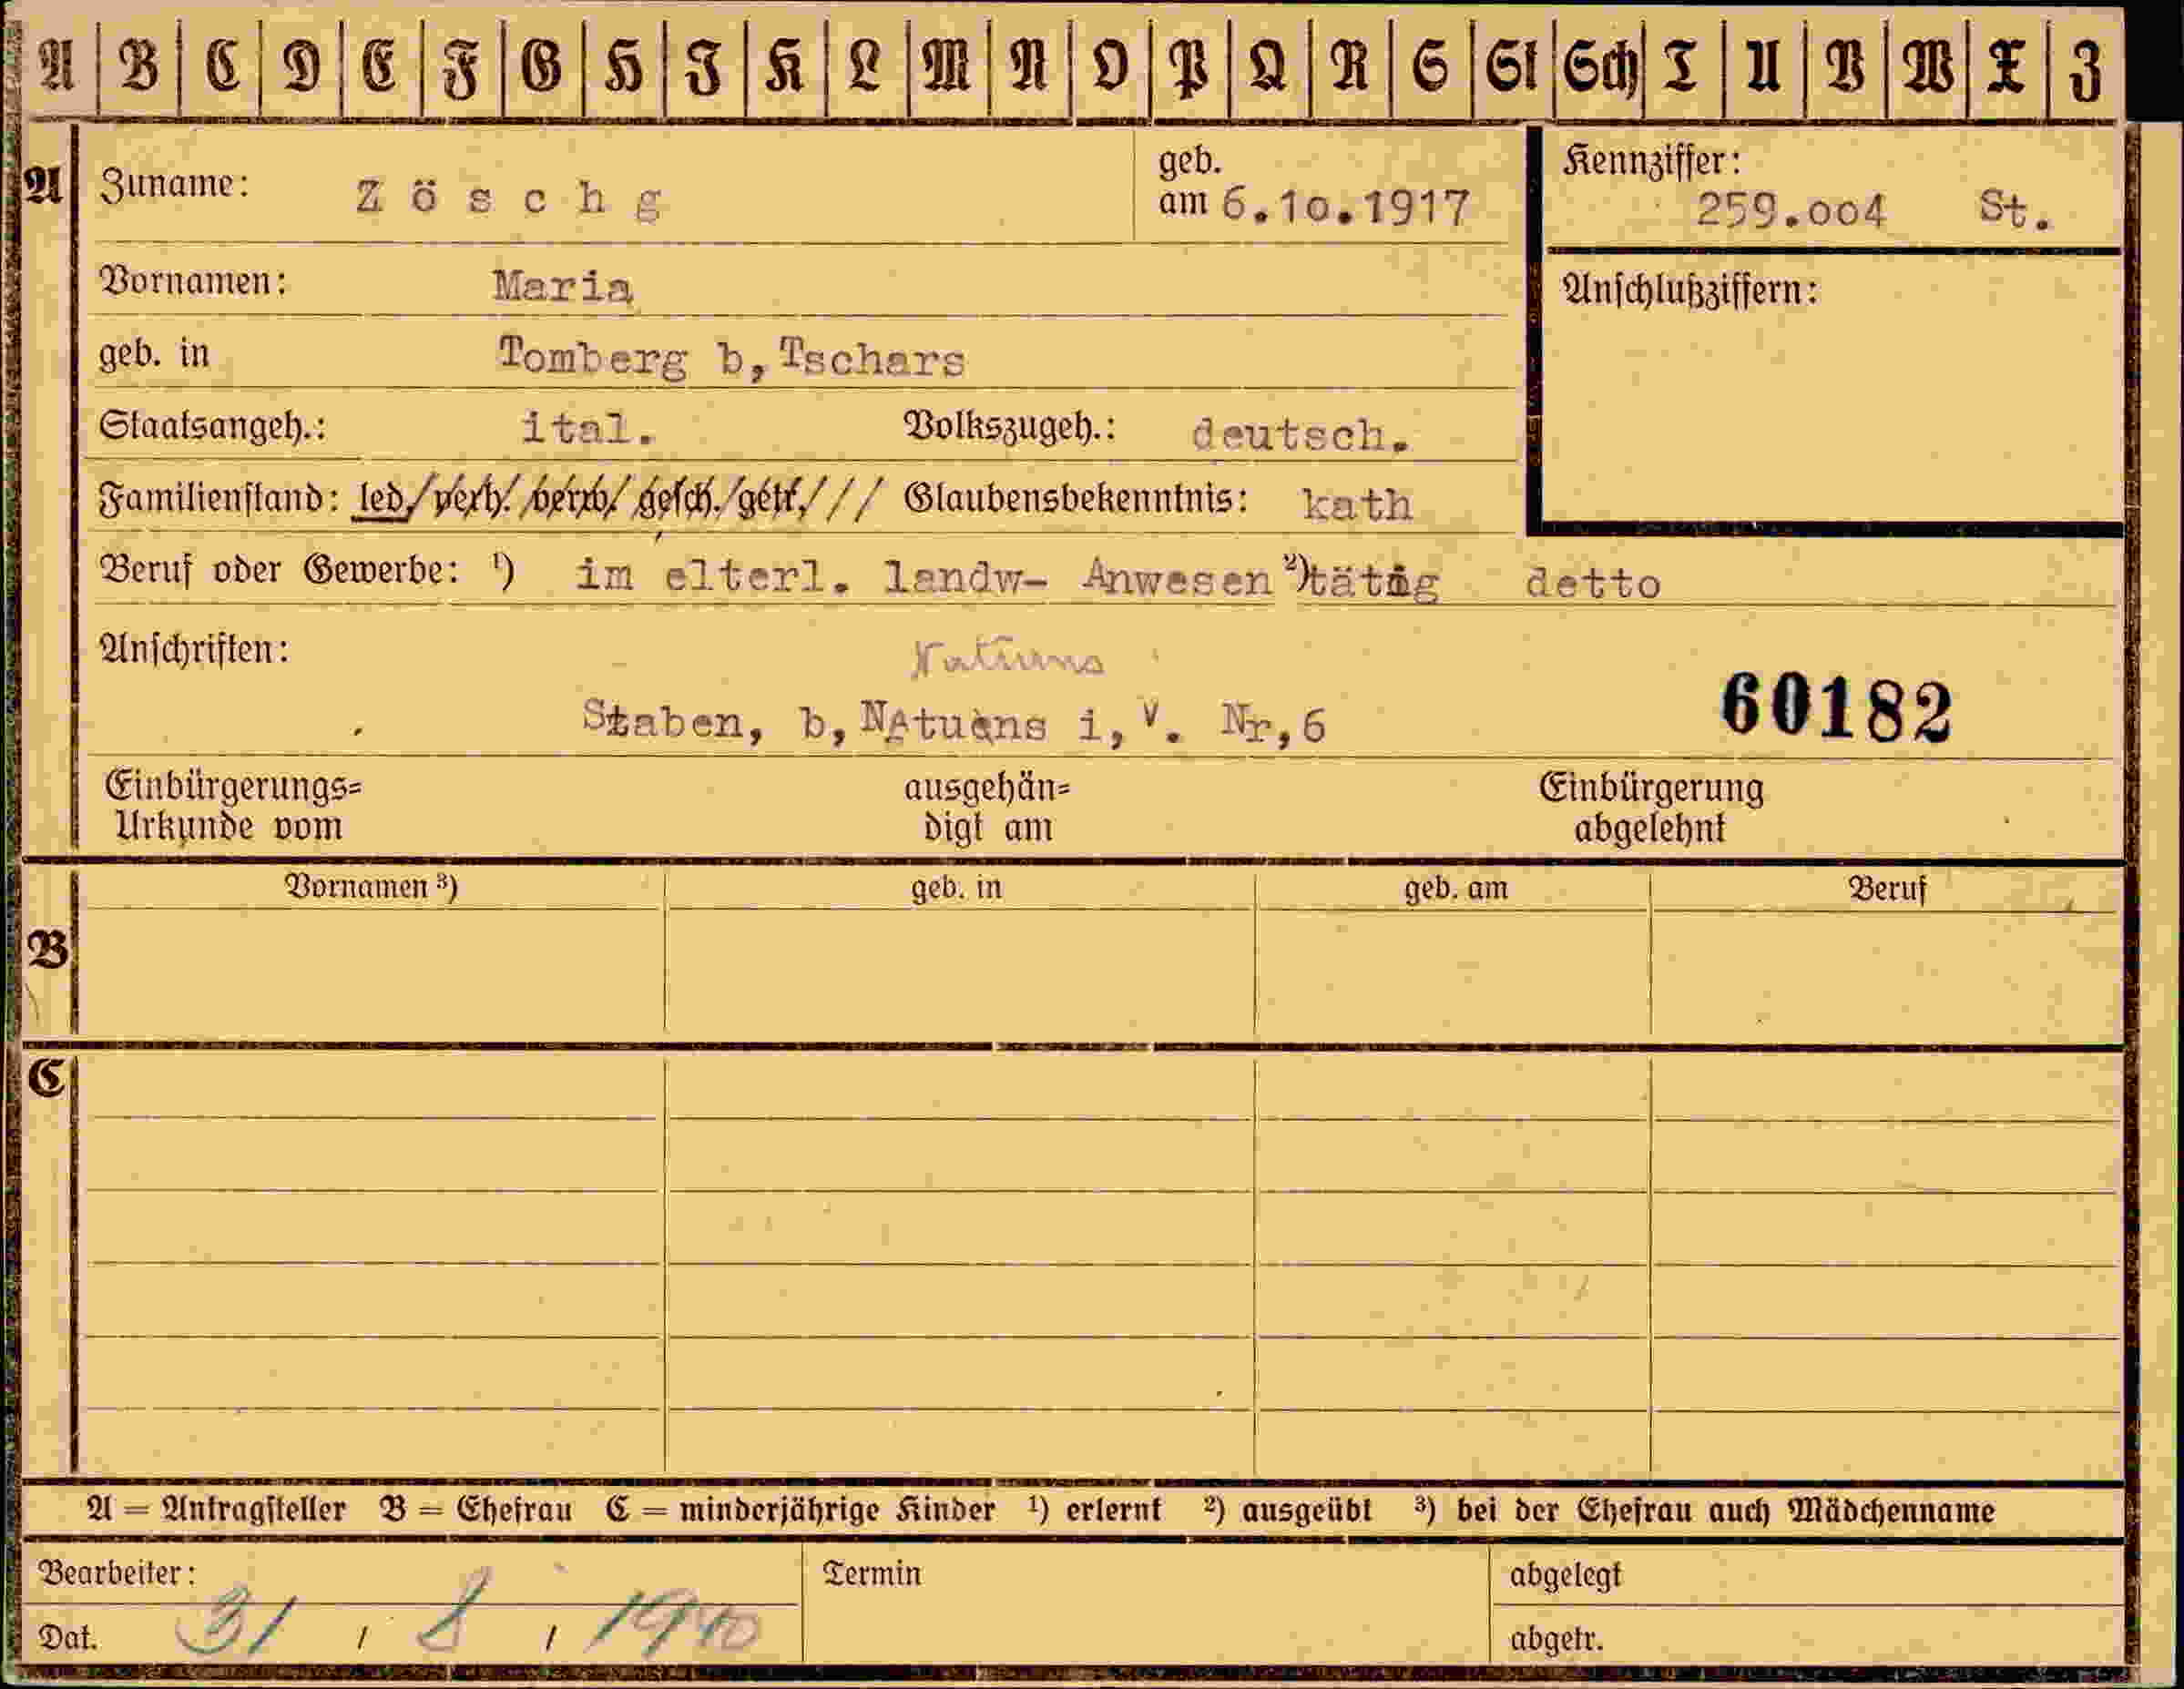 A B C D E F G H I K L M N O P Q R S St Sch T U V W X Z
A Zuname: Zöschg geb. am 6.10.1917 Kennziffer: 259.004 St.
Vornamen: Maria Anschlußziffern:
geb. in Tomberg b,Tschars
Staatsangeh.: ital. Volkszugeh.: deutsch.
Familienstand: led./verh./verw./gesch./getr./// Glaubensbekenntnis: kath
Beruf oder Gewerbe: ¹) im elterl. landw- Anwesen ²) tätig detto
Anschriften: Naturns
Staben, b, NAtuans i, V. Nr,6 60182
Einbürgerungs= ausgehän= Einbürgerung
Urkunde vom digt am abgelehnt
Vornamen ³) geb. in geb. am Beruf
B
C
A = Antragsteller B = Ehefrau C = minderjährige Kinder ¹) erlernt ²) ausgeübt ³) bei der Ehefrau auch Mädchenname
Bearbeiter: Termin abgelegt
Dat. 31 / 8 / 1940 abgetr.